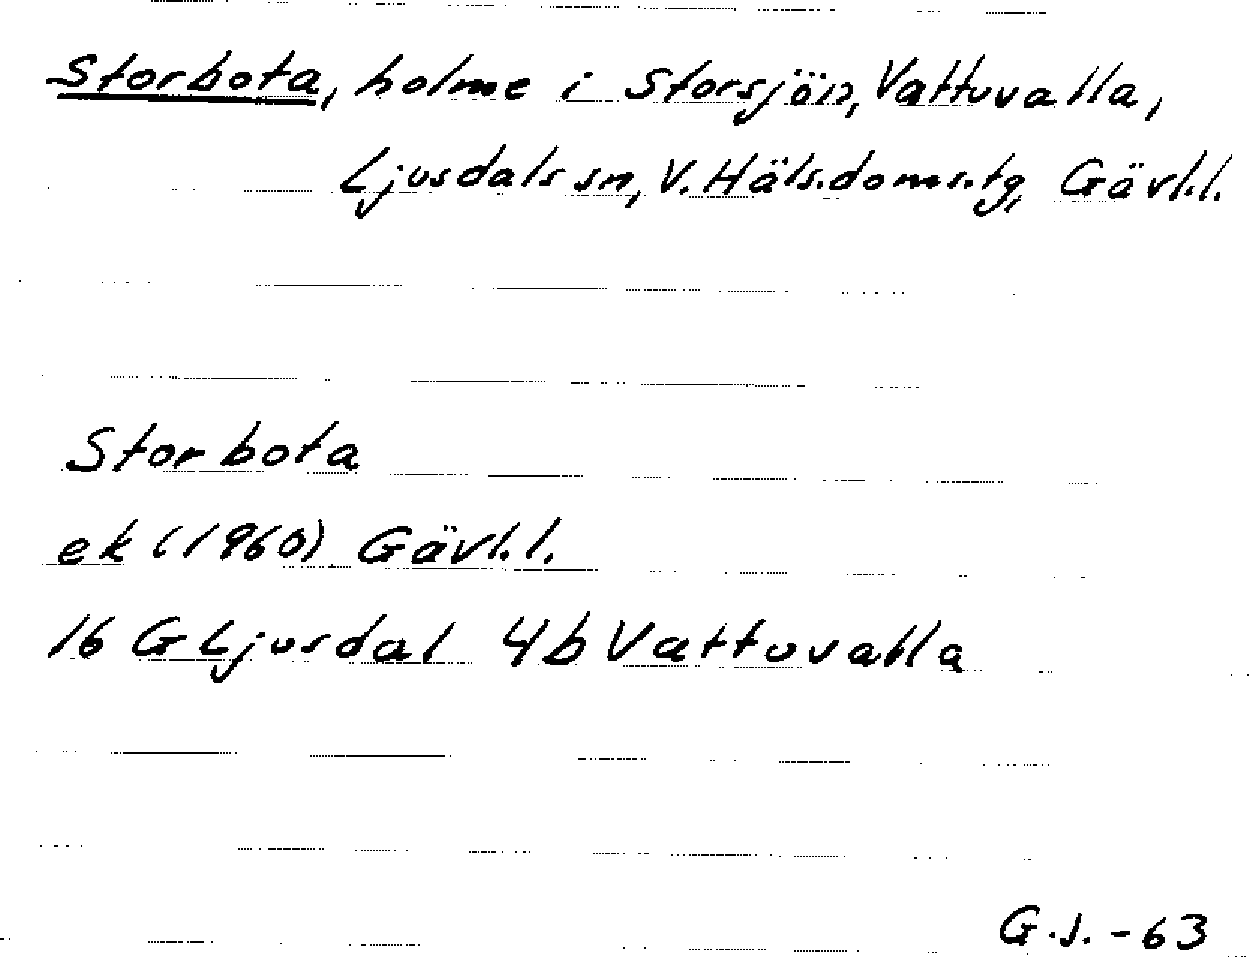 Storbota, holme i Storsjön, Vattuvalla,
Ljusdals sn, V. Häls. doms.tg, Gävl.l.
Storbota
ek (1960) Gävl.l.
16 G Ljusdal 4b Vattuvalla
G.J. -63